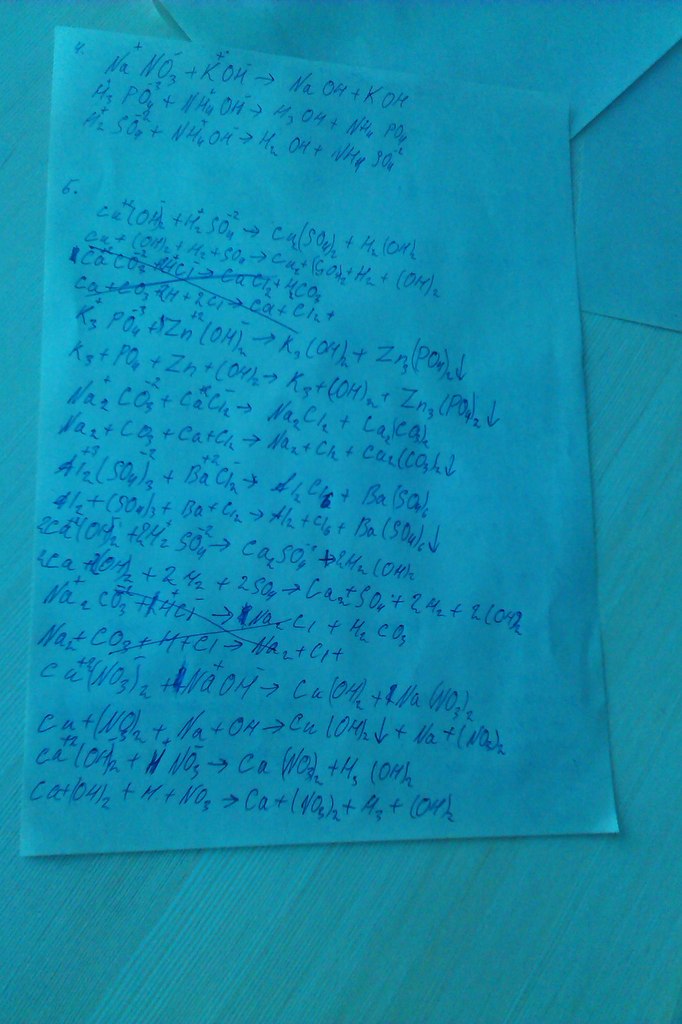 4.
Na⁺NO₃⁻ + K⁺OH⁻ → NaOH + KOH
H₃⁺PO₄⁻³ + NH₄⁺OH⁻ → H₃OH + NH₄PO₄
H₂⁺SO₄⁻² + NH₄⁺OH⁻ → H₂OH + NH₄SO₄⁻²
5.
Cu⁺²(OH)₂⁻ + H₂⁺SO₄⁻² → Cu₂(SO₄)₂ + H₂(OH)₂
Cu + (OH)₂ + H₂ + SO₄ → Cu₂ + (SO₄)₂ + H₂ + (OH)₂
K₃⁺PO₄⁻³ + Zn⁺²(OH)₂⁻ → K₃(OH)₂ + Zn₃(PO₄)₂↓
K₃ + PO₄ + Zn + (OH)₂ → K₃ + (OH)₂ + Zn₃(PO₄)₂↓
Na₂⁺CO₃⁻² + Ca⁺²Cl₂⁻ → Na₂Cl₂ + Ca₂(CO₃)₂
Na₂ + CO₃ + Ca + Cl₂ → Na₂ + Cl₂ + Ca₂(CO₃)₂↓
Al₂⁺³(SO₄)₃⁻² + Ba⁺²Cl₂⁻ → Al₂Cl₆ + Ba(SO₄)₆
Al₂ + (SO₄)₃ + Ba + Cl₂ → Al₂ + Cl₆ + Ba(SO₄)₆↓
2Ca⁺²(OH)₂⁻ + 2H₂⁺SO₄⁻² → Ca₂SO₄ + 2H₂(OH)₂
2Ca + 2(OH)₂ + 2H₂ + 2SO₄ → Ca₂ + SO₄ + 2H₂ + 2(OH)₂
Na₂⁺CO₃⁻² + H⁺Cl⁻ → Na₂Cl + H₂CO₃
Na₂ + CO₃ + H + Cl → Na₂ + Cl +
Cu⁺²(NO₃)₂⁻ + Na⁺OH⁻ → Cu(OH)₂ + Na(NO₃)₂
Cu + (NO₃)₂ + Na + OH → Cu(OH)₂↓ + Na + (NO₃)₂
Ca⁺²(OH)₂⁻ + H⁺NO₃⁻ → Ca(NO₃)₂ + H₃(OH)₂
Ca + (OH)₂ + H + NO₃ → Ca + (NO₃)₂ + H₃ + (OH)₂